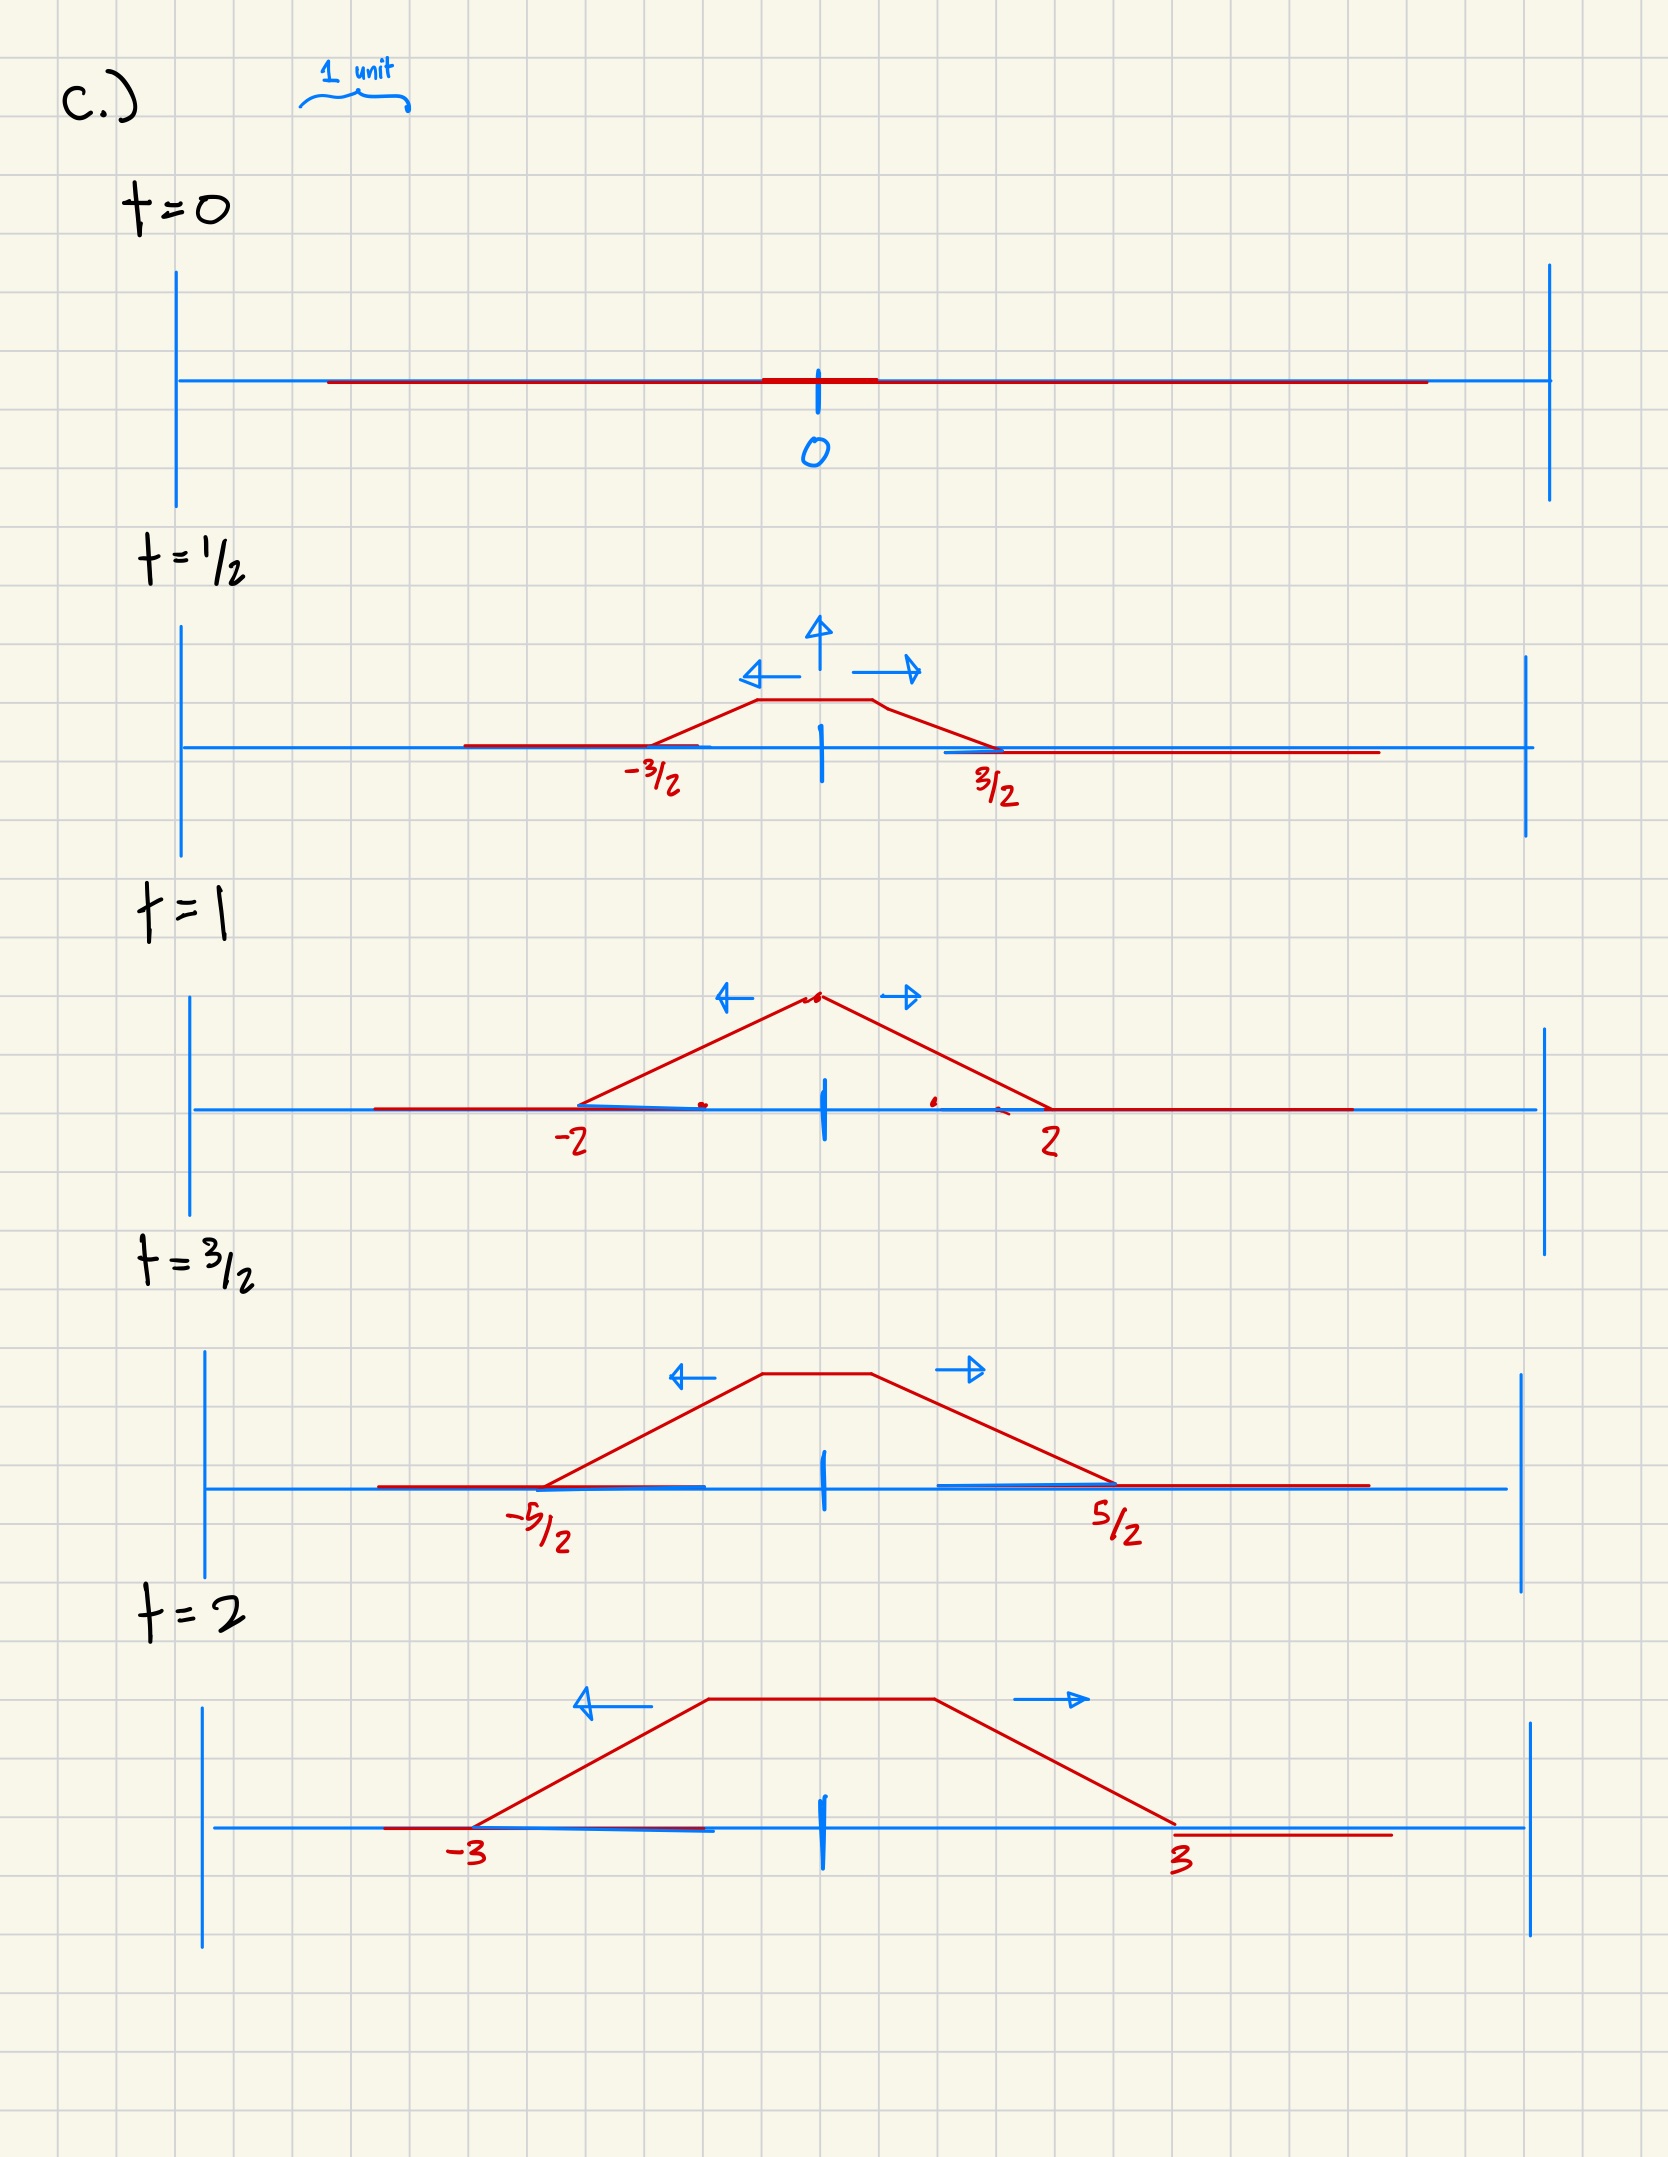 c.)
1 unit
t=0
0
t=1/2
-3/2 3/2
t=1
-2 2
t=3/2
-5/2 5/2
t=2
-3 3